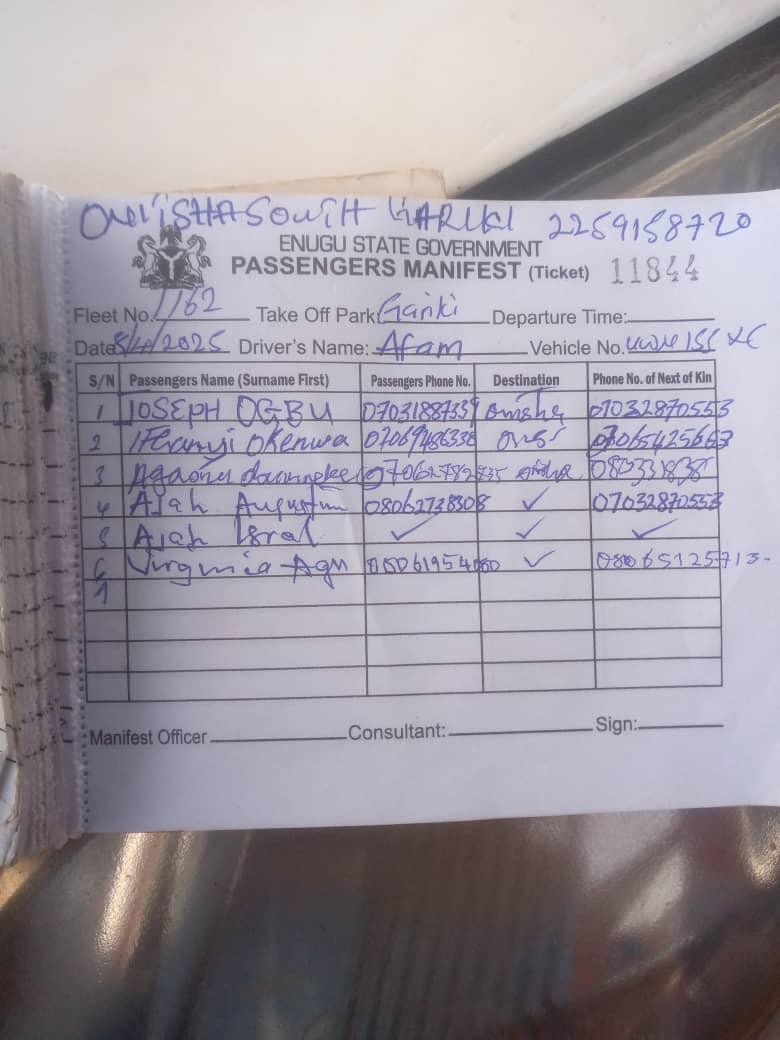 ONITSHA SOUTH GARIKI 2259158720
ENUGU STATE GOVERNMENT
PASSENGERS MANIFEST (Ticket) 11844
Fleet No. 1162 Take Off Park: Gariki Departure Time:
Date 8/4/2025 Driver's Name: Afam Vehicle No.
S/N Passengers Name (Surname First) Passengers Phone No. Destination Phone No. of Next of Kin
1 JOSEPH OGBU 07031887339 07032870553
2 Ifeanyi Okenwa 07069486338 07065425663
3 Agaonu 080331838
4 Ajah Augustin 08062738308 ✓ 07032870553
5 Ajah Isral ✓ ✓ ✓
6 Virginia Agu ✓ 08065125713-
7
Manifest Officer Consultant: Sign: